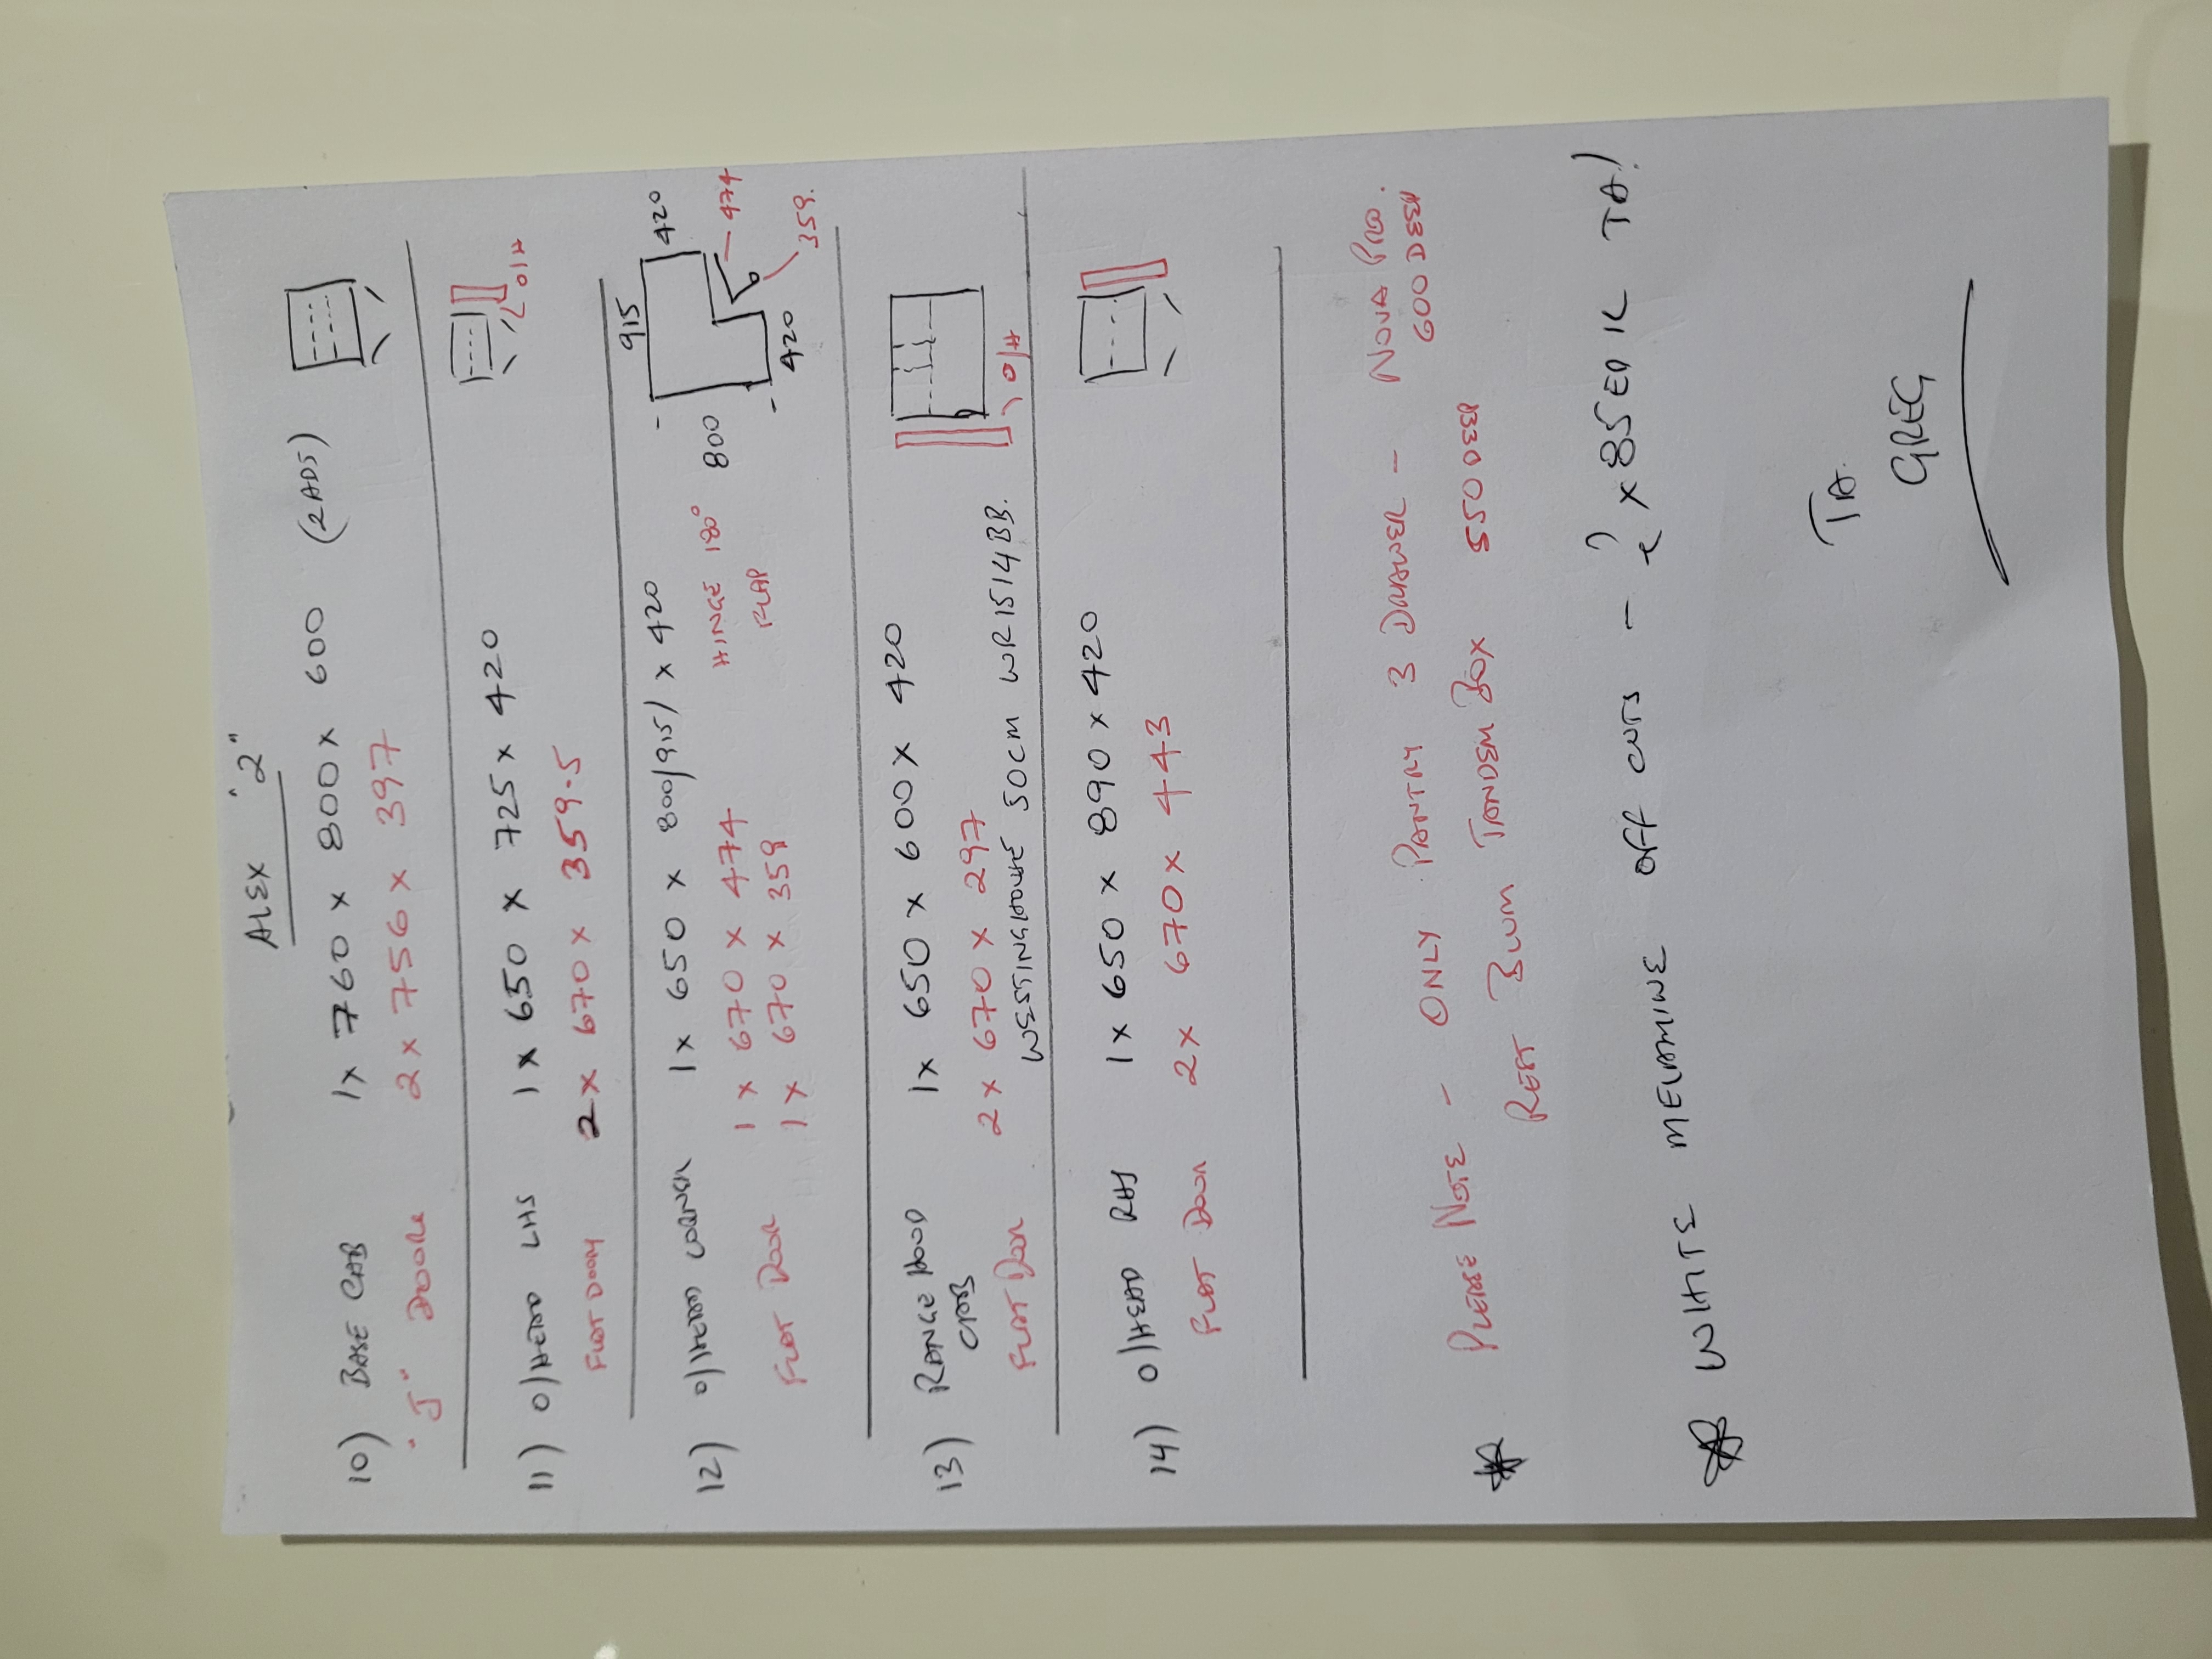 ALEX "2"
10) BASE CAB 1x 760 x 800 x 600 (2ADS)
"J" DOORS 2 x 756 x 397
11) O/HEAD LHS 1 x 650 x 725 x 420
FLAT DOOR 2 x 670 x 359.5
O/H
12) O/HEAD CORNER 1x 650 x 800/915/ x 420
915
420
474
359.
420
800
1 x 670 x 474 HINGE 180°
FLAT DOOR 1 x 670 x 359 FLAP
13) RANGE HOOD 1x 650 x 600 x 420
CAB
FLAT DOOR 2 x 670 x 297
O/H
WESTINGHOUSE 50CM WR1514BB.
14) O/HEAD RHS 1x 650 x 890 x 420
FLAT DOOR 2x 670 x 443
PLEASE NOTE - ONLY PANTRY 3 DRAWER - NOVA PRO.
600 DEEP
REST BLUM TANDEM BOX 550 DEEP
WHITE MELAMINE OFF CUTS - ? x 85 TA!
TA.
GREG